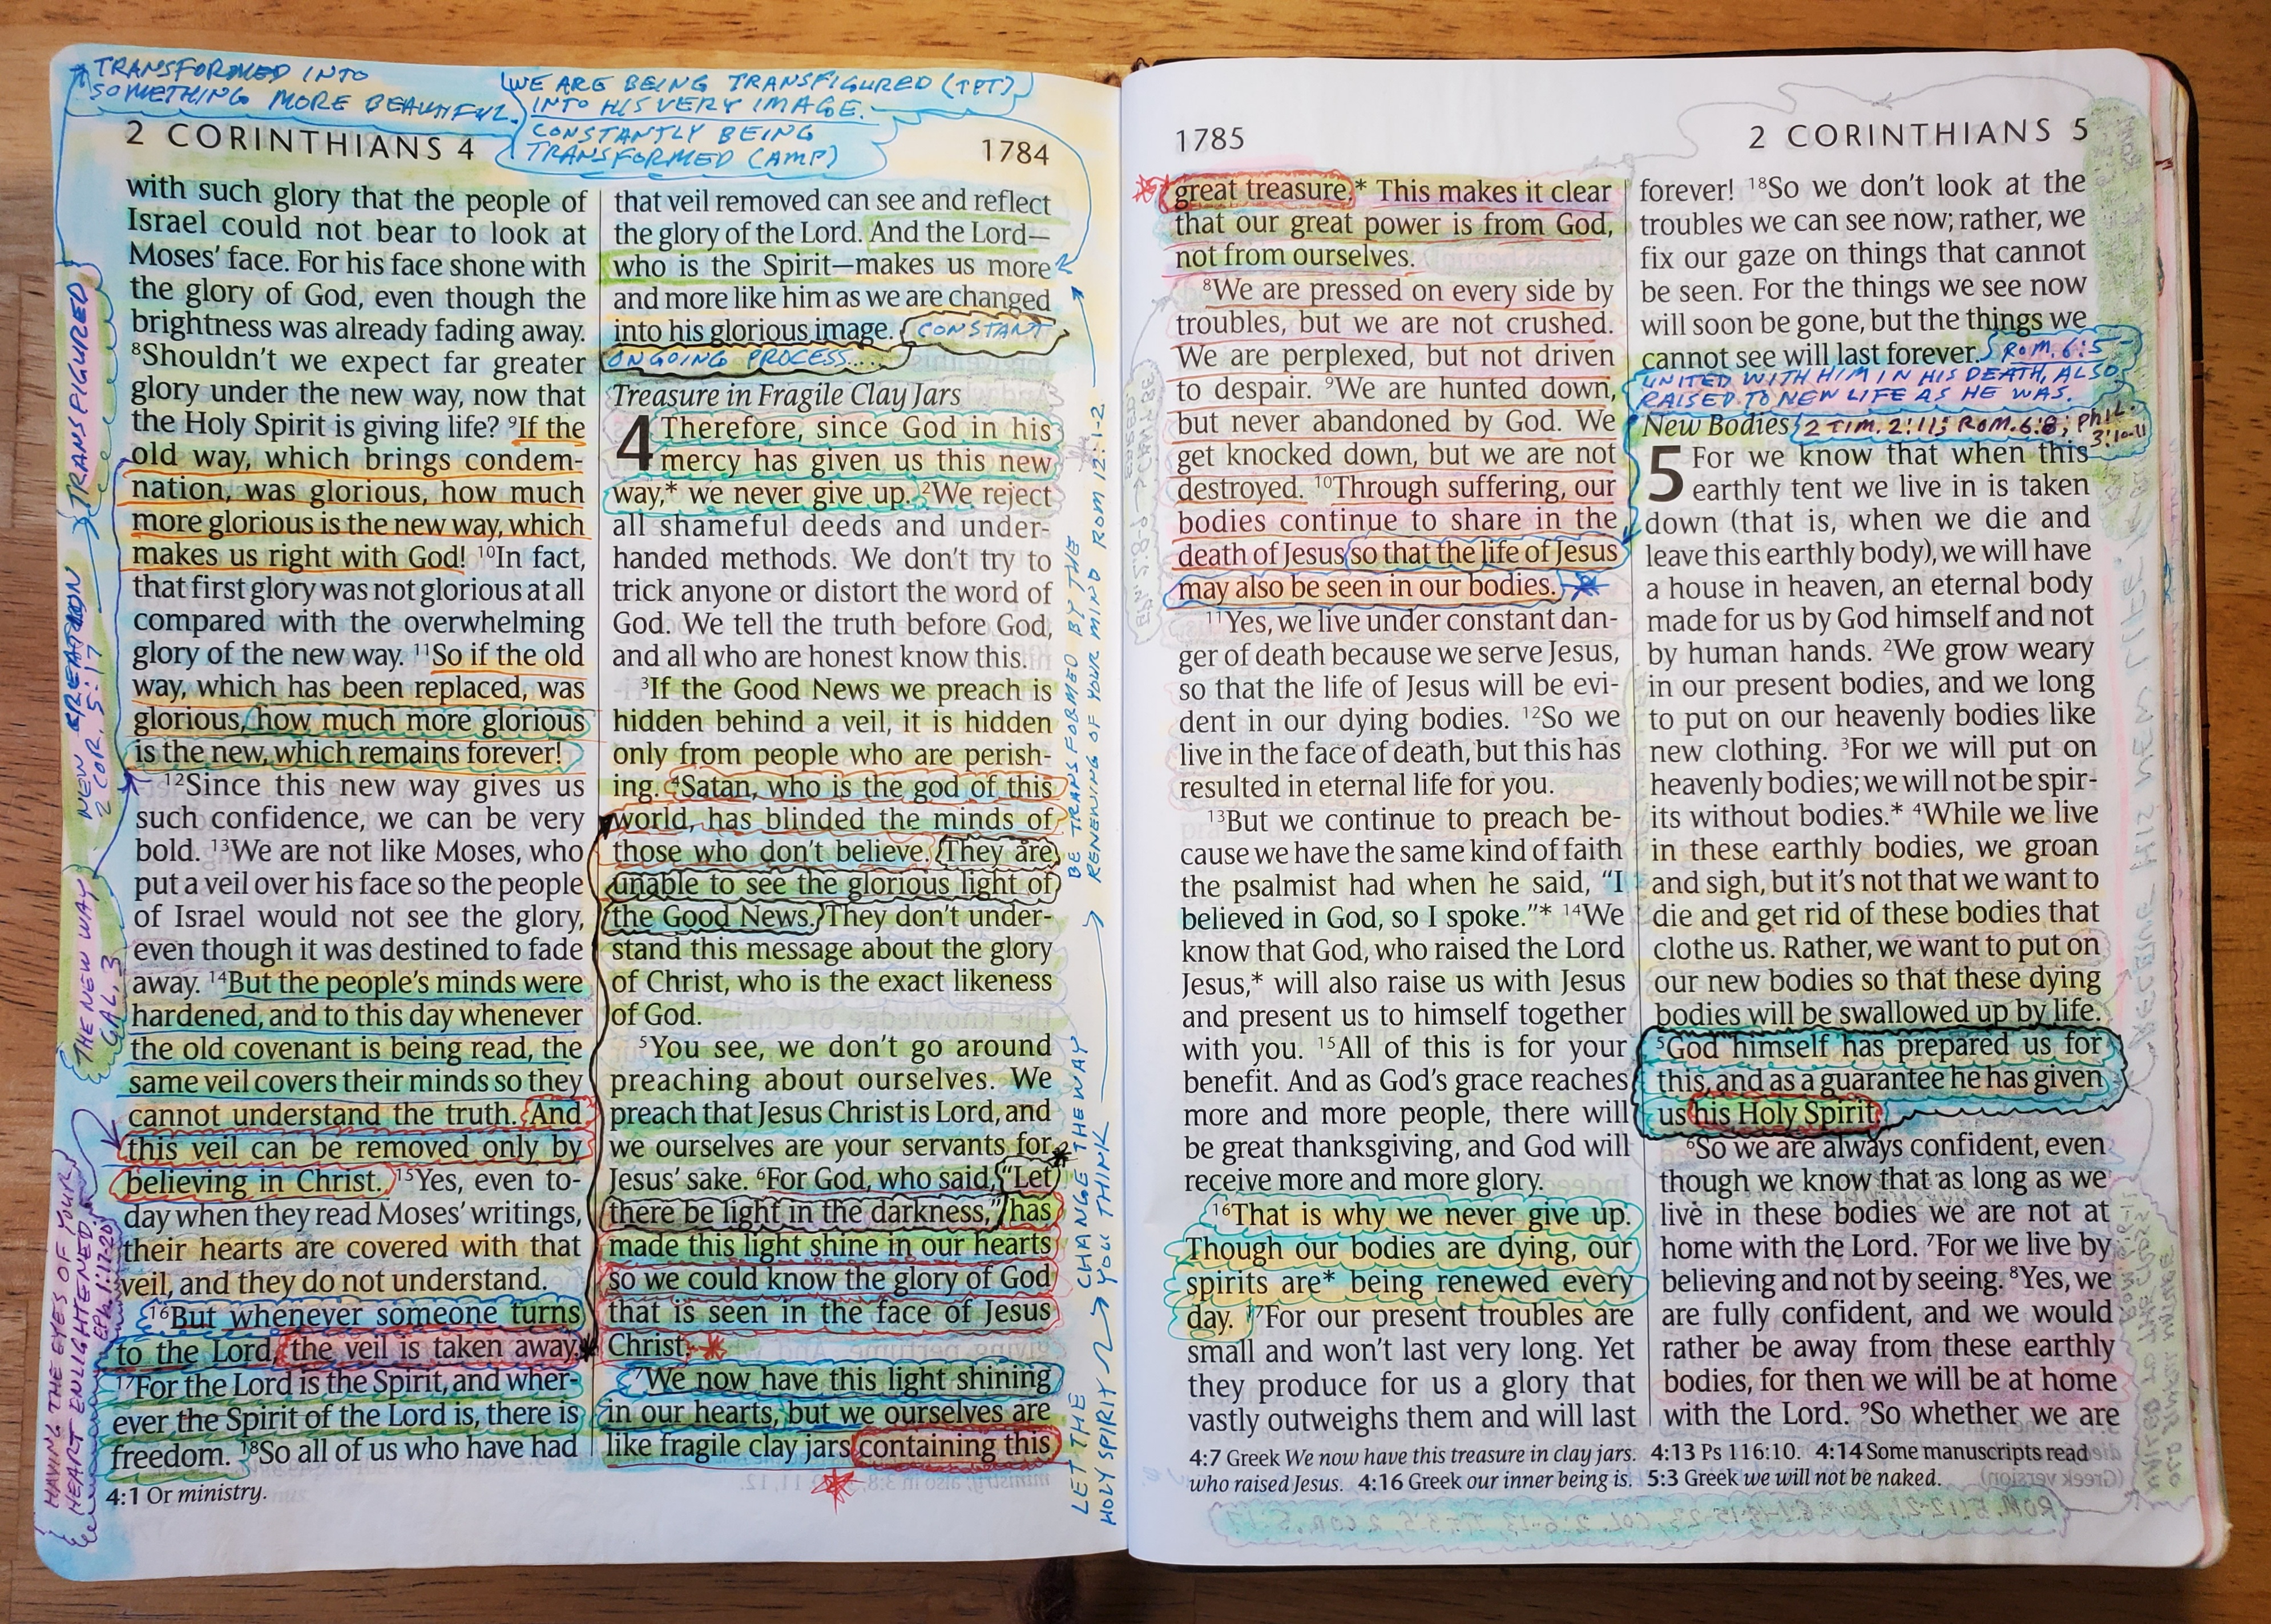 TRANSFORMED INTO
SOMETHING MORE BEAUTIFUL.
WE ARE BEING TRANSFIGURED (TPT)
INTO HIS VERY IMAGE.
CONSTANTLY BEING
TRANSFORMED (AMP)
2 CORINTHIANS 4
1784
TRANSFIGURED
NEW CREATION
2 COR. 5:17
THE NEW WAY
GAL. 3
HAVING THE EYES OF YOUR
HEART ENLIGHTENED
EPh. 1:17-20
with such glory that the people of
Israel could not bear to look at
Moses' face. For his face shone with
the glory of God, even though the
brightness was already fading away.
8Shouldn't we expect far greater
glory under the new way, now that
the Holy Spirit is giving life? 9If the
old way, which brings condem-
nation, was glorious, how much
more glorious is the new way, which
makes us right with God! 10In fact,
that first glory was not glorious at all
compared with the overwhelming
glory of the new way. 11So if the old
way, which has been replaced, was
glorious, how much more glorious
is the new, which remains forever!
12Since this new way gives us
such confidence, we can be very
bold. 13We are not like Moses, who
put a veil over his face so the people
of Israel would not see the glory,
even though it was destined to fade
away. 14But the people's minds were
hardened, and to this day whenever
the old covenant is being read, the
same veil covers their minds so they
cannot understand the truth. And
this veil can be removed only by
believing in Christ. 15Yes, even to-
day when they read Moses' writings,
their hearts are covered with that
veil, and they do not understand.
16But whenever someone turns
to the Lord, the veil is taken away.
17For the Lord is the Spirit, and wher-
ever the Spirit of the Lord is, there is
freedom. 18So all of us who have had
4:1 Or ministry.
that veil removed can see and reflect
the glory of the Lord. And the Lord—
who is the Spirit—makes us more
and more like him as we are changed
into his glorious image. CONSTANT
ONGOING PROCESS....
Treasure in Fragile Clay Jars
4 Therefore, since God in his
mercy has given us this new
way,* we never give up. 2We reject
all shameful deeds and under-
handed methods. We don't try to
trick anyone or distort the word of
God. We tell the truth before God,
and all who are honest know this.
3If the Good News we preach is
hidden behind a veil, it is hidden
only from people who are perish-
ing. 4Satan, who is the god of this
world, has blinded the minds of
those who don't believe. They are
unable to see the glorious light of
the Good News. They don't under-
stand this message about the glory
of Christ, who is the exact likeness
of God.
5You see, we don't go around
preaching about ourselves. We
preach that Jesus Christ is Lord, and
we ourselves are your servants for
Jesus' sake. 6For God, who said, "Let
there be light in the darkness," has
made this light shine in our hearts
so we could know the glory of God
that is seen in the face of Jesus
Christ.
7We now have this light shining
in our hearts, but we ourselves are
like fragile clay jars containing this
LET THE
HOLY SPIRIT
CHANGE THE WAY
YOU THINK
BE TRANSFORMED BY THE
RENEWING OF YOUR MIND ROM 12:1-2
1785
2 CORINTHIANS 5
great treasure.* This makes it clear
that our great power is from God,
not from ourselves.
8We are pressed on every side by
troubles, but we are not crushed.
We are perplexed, but not driven
to despair. 9We are hunted down,
but never abandoned by God. We
get knocked down, but we are not
destroyed. 10Through suffering, our
bodies continue to share in the
death of Jesus so that the life of Jesus
may also be seen in our bodies.
11Yes, we live under constant dan-
ger of death because we serve Jesus,
so that the life of Jesus will be evi-
dent in our dying bodies. 12So we
live in the face of death, but this has
resulted in eternal life for you.
13But we continue to preach be-
cause we have the same kind of faith
the psalmist had when he said, "I
believed in God, so I spoke."* 14We
know that God, who raised the Lord
Jesus,* will also raise us with Jesus
and present us to himself together
with you. 15All of this is for your
benefit. And as God's grace reaches
more and more people, there will
be great thanksgiving, and God will
receive more and more glory.
16That is why we never give up.
Though our bodies are dying, our
spirits are* being renewed every
day. 17For our present troubles are
small and won't last very long. Yet
they produce for us a glory that
vastly outweighs them and will last
forever! 18So we don't look at the
troubles we can see now; rather, we
fix our gaze on things that cannot
be seen. For the things we see now
will soon be gone, but the things we
cannot see will last forever. ROM. 6:5
UNITED WITH HIM IN HIS DEATH, ALSO
RAISED TO NEW LIFE AS HE WAS.
New Bodies 2 TIM. 2:11; ROM. 6:8; PhIL. 3:10-11
5 For we know that when this
earthly tent we live in is taken
down (that is, when we die and
leave this earthly body), we will have
a house in heaven, an eternal body
made for us by God himself and not
by human hands. 2We grow weary
in our present bodies, and we long
to put on our heavenly bodies like
new clothing. 3For we will put on
heavenly bodies; we will not be spir-
its without bodies.* 4While we live
in these earthly bodies, we groan
and sigh, but it's not that we want to
die and get rid of these bodies that
clothe us. Rather, we want to put on
our new bodies so that these dying
bodies will be swallowed up by life.
5God himself has prepared us for
this, and as a guarantee he has given
us his Holy Spirit.
6So we are always confident, even
though we know that as long as we
live in these bodies we are not at
home with the Lord. 7For we live by
believing and not by seeing. 8Yes, we
are fully confident, and we would
rather be away from these earthly
bodies, for then we will be at home
with the Lord. 9So whether we are
4:7 Greek We now have this treasure in clay jars. 4:13 Ps 116:10. 4:14 Some manuscripts read
who raised Jesus. 4:16 Greek our inner being is. 5:3 Greek we will not be naked.